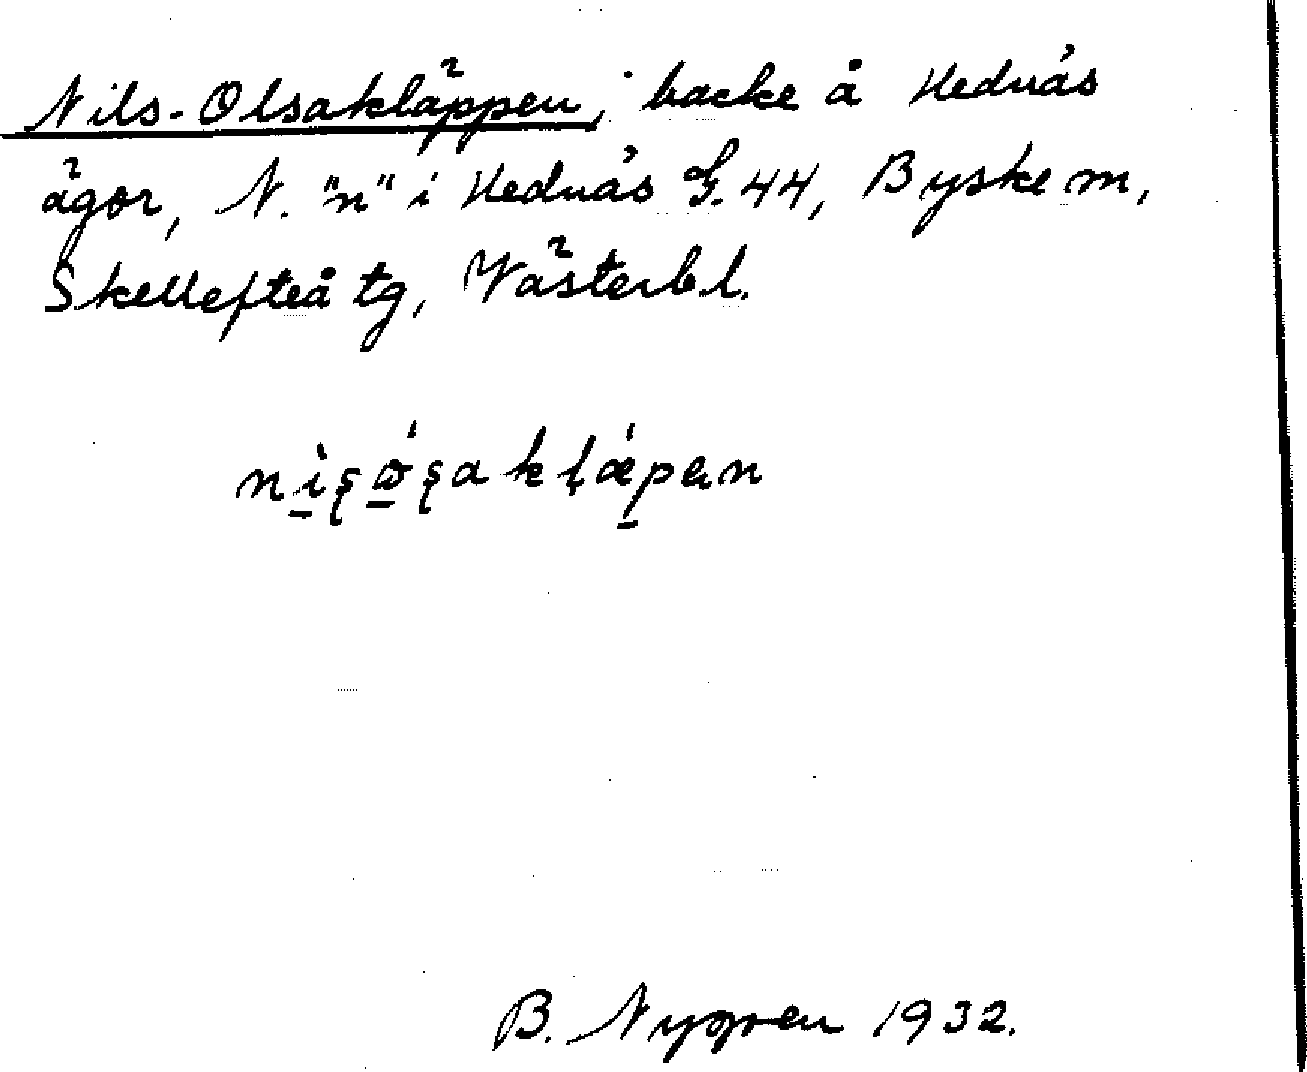 Nils-Olsakläppen, backe å Hednäs
ägor, N. "n" i Hednäs G. 44, Byske sn,
Skellefteå tg, Västerb. l.
nìșǿșakłǽpən
B. Nygren 1932.